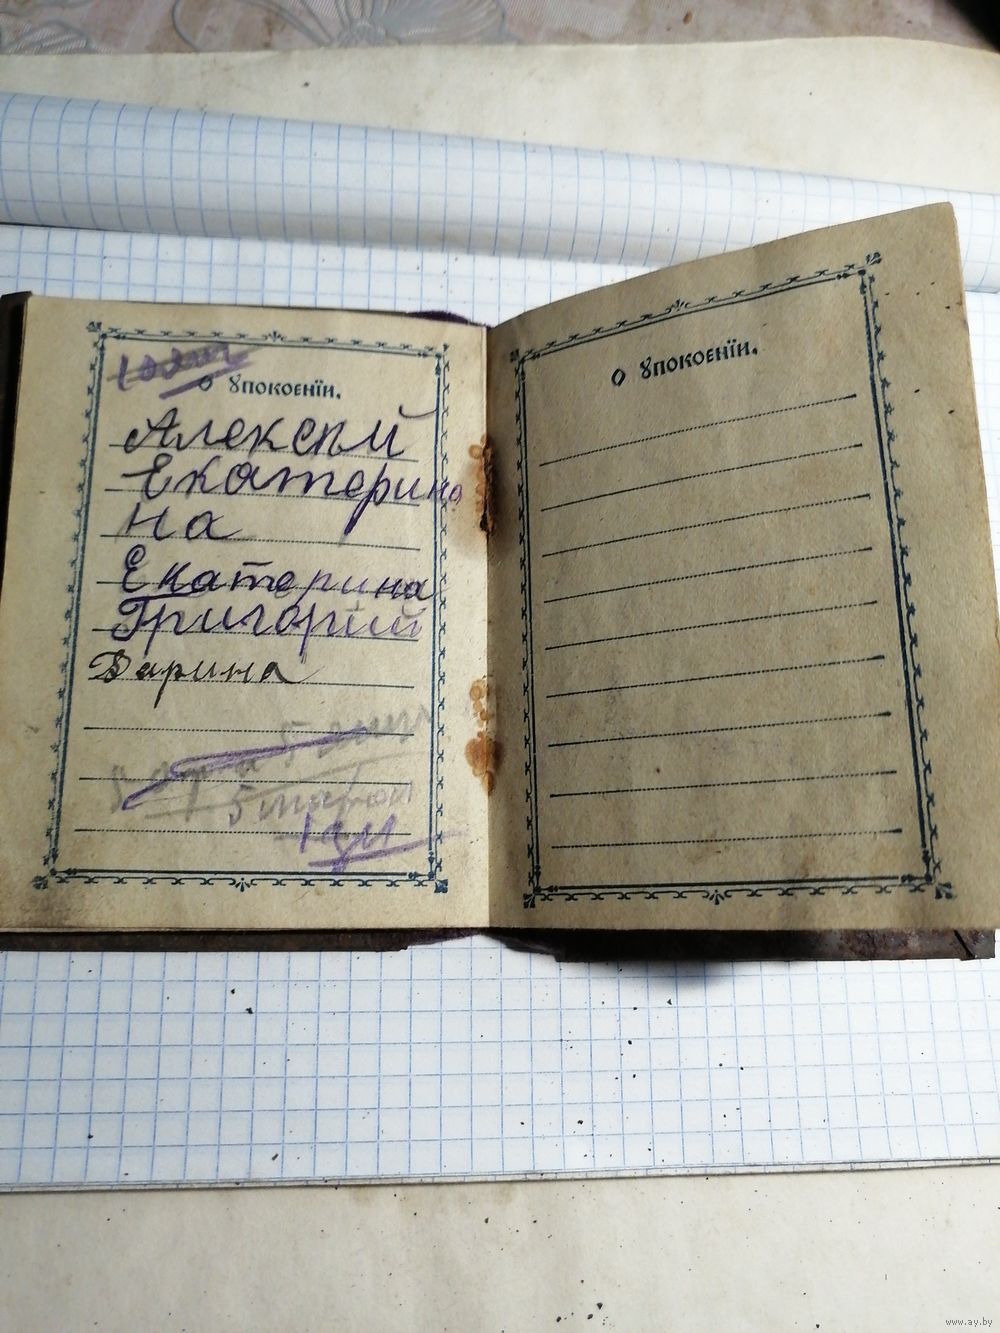 О Ꙋпокоенїи.
Алексѣй
Екатерина
на
Екатерина
Григорий
Дарина
О Ꙋпокоенїи.
www.ay.by